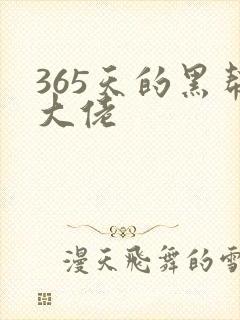 365天的黑帮
大佬
漫天飞舞的雪